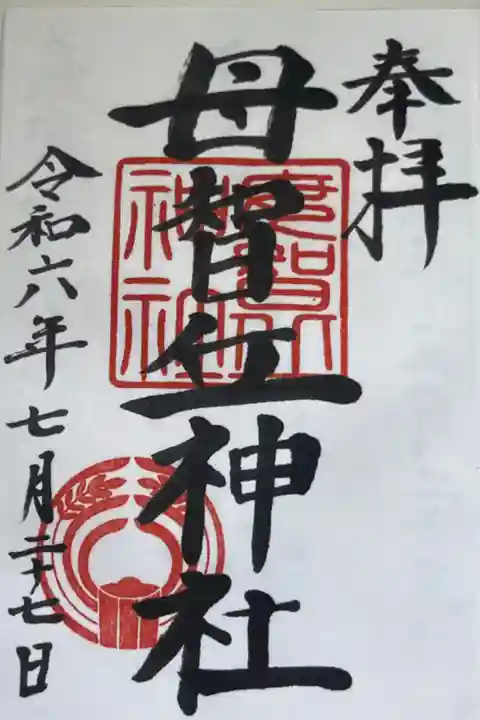 奉拝
母智丘神社
令和六年七月二十七日